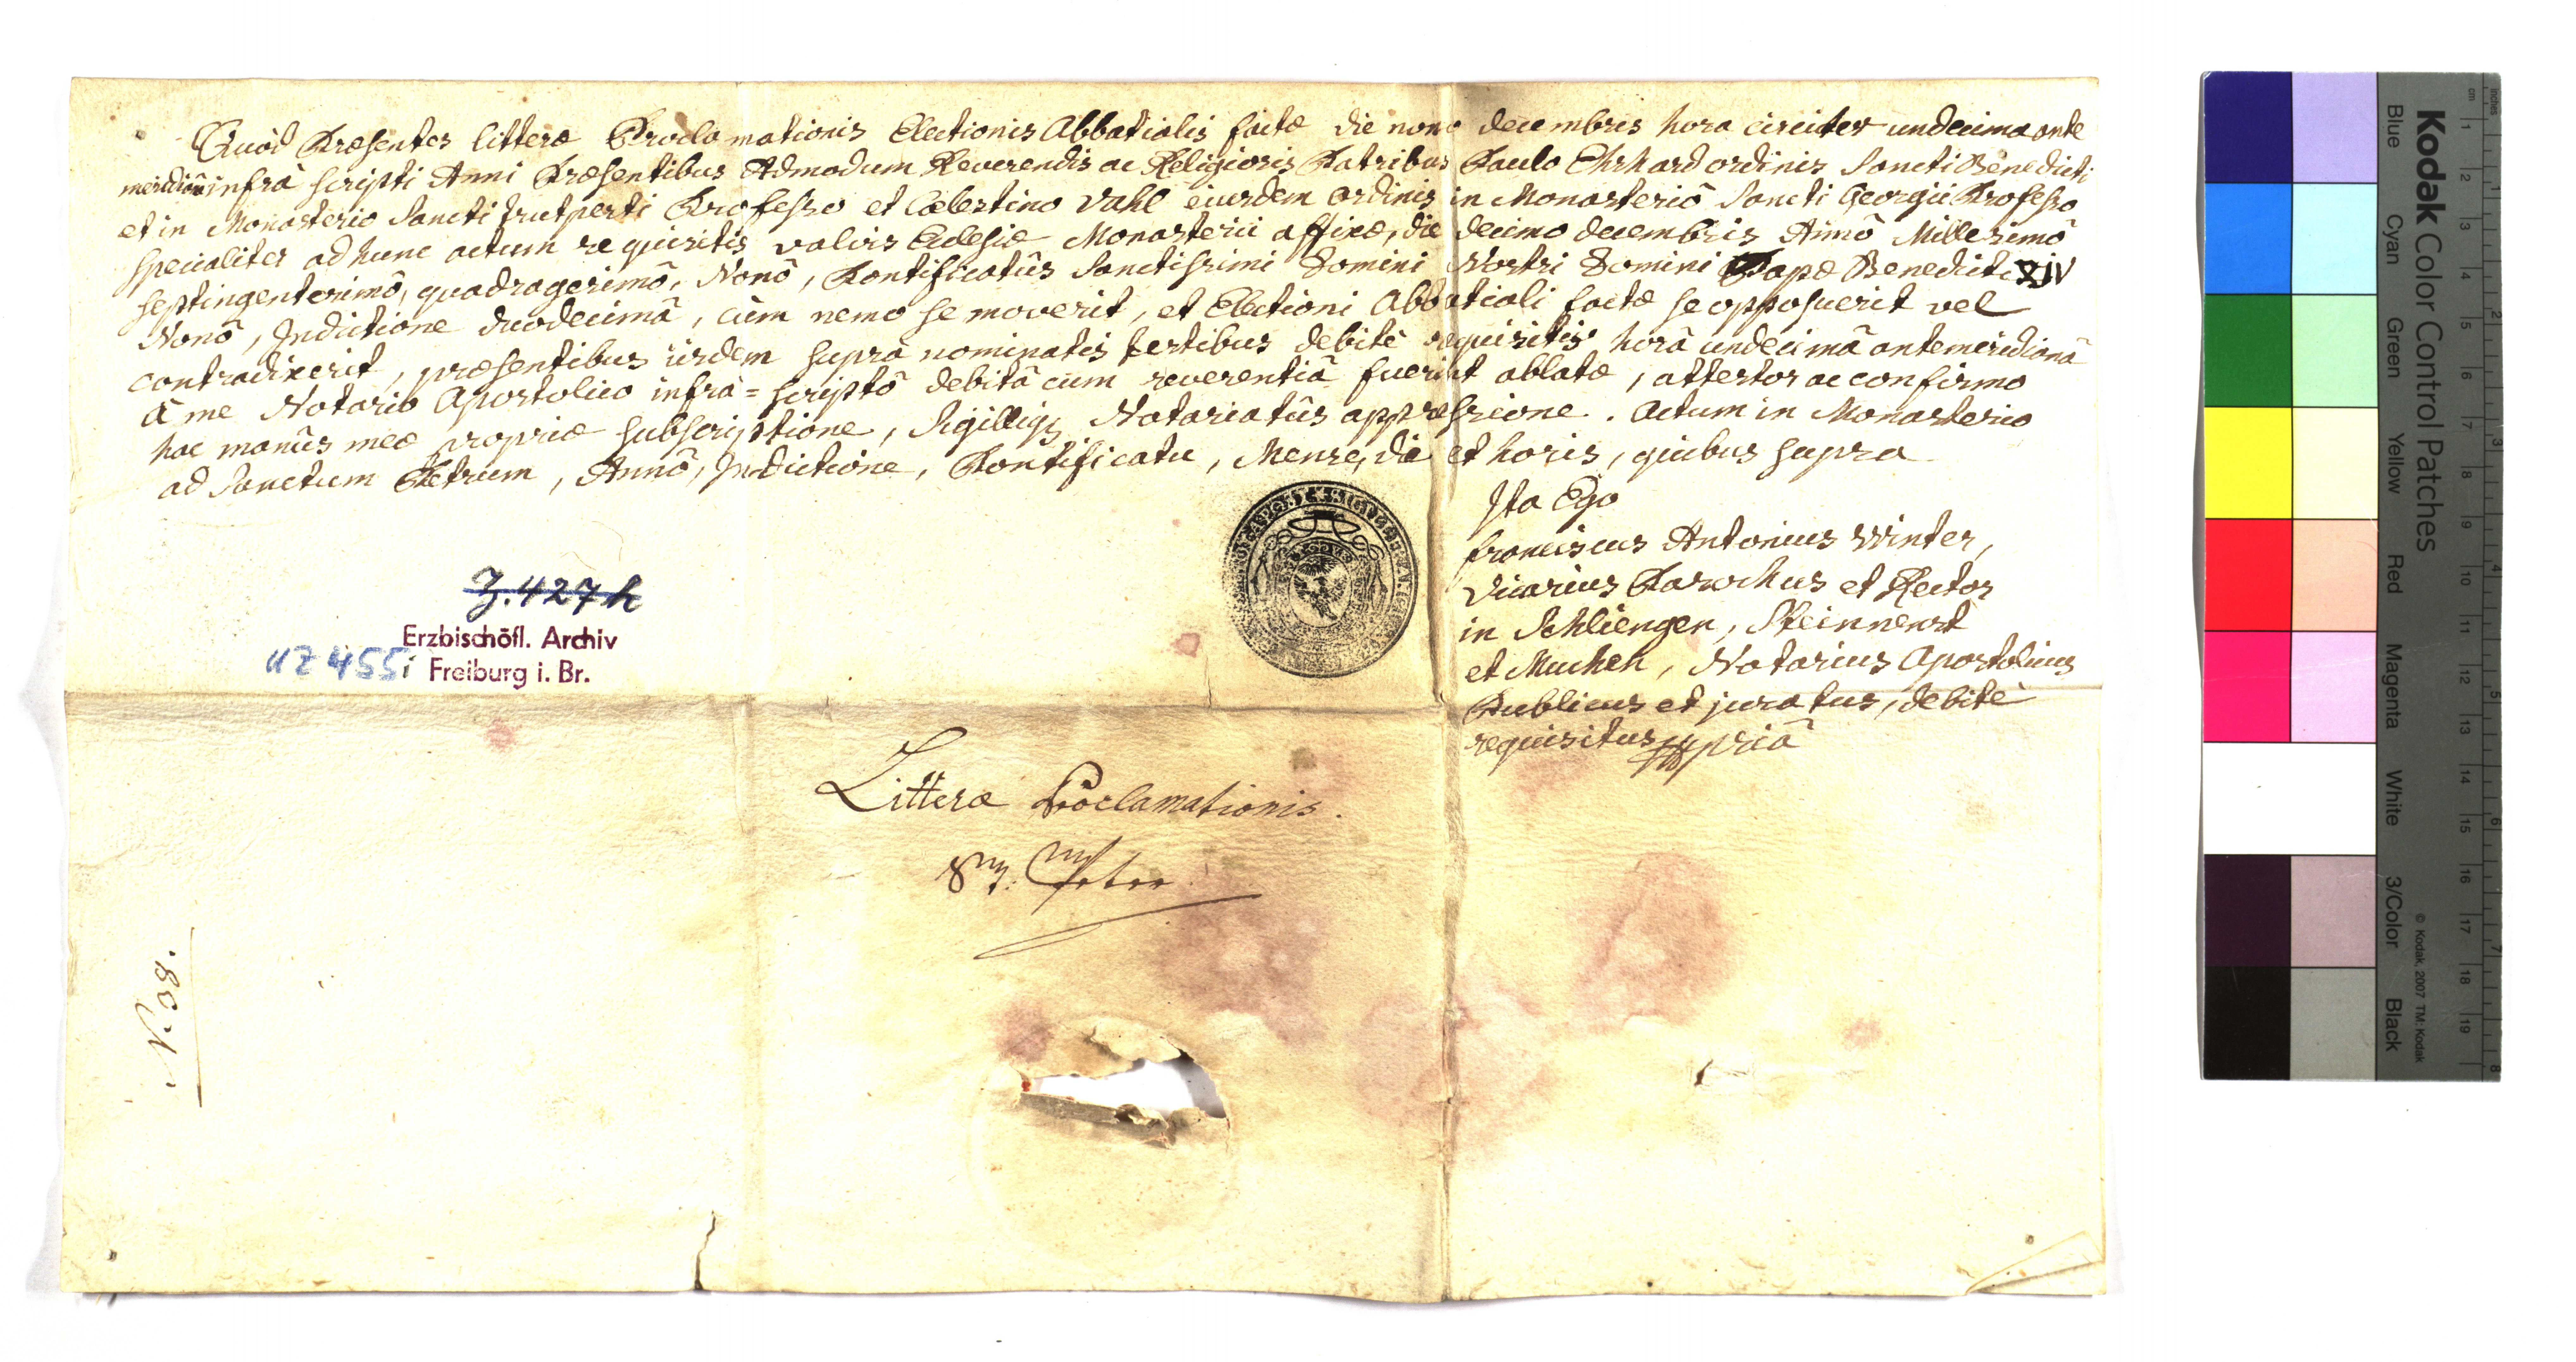 Quòd Præsentes litteræ Proclamationis Electionis Abbatialis factæ die nono decembris hora circiter undecima ante
meridiem infrà scripti Anni Præsentibus Admodum Reverendis ac Religiosis Patribus Paulo Ehrhard ordinis Sancti Benedicti
et in Monasterio Sancti Trutperti Professo et Cælestino Vahl eiusdem ordinis in Monasteriô Sancti Georgii Professo
specialiter ad hunc actum requisitis valvis Ecclesiæ Monasterii affixæ, die decimo decembris Annô Millesimô
septingentesimô, quadragesimô, Nonô, Pontificatûs Sanctissimi Domini Nostri Domini Papæ Benedicti XIV
Nonô, Indictione duodecimâ, cùm nemo se moverit, et Electioni Abbatiali factæ se opposuerit vel
contradixerit, præsentibus iisdem suprà nominatis testibus debitè requisitis horâ undecimâ antemeridianâ
à me Notario Apostolico infrà=scriptô debitâ cum reverentiâ fuerint ablatæ, attestor ac confirmo
hac manûs meæ propriæ subscriptione, Sigilliq; Notariatûs appressione. Actum in Monasterio
ad Sanctum Petrum, Annô, Indictione, Pontificatu, Mense, die et horis, quibus supra
Ita Ego
Franciscus Antonius Winter,
Vicarius Parochus et Rector
in Schliengen, Steinnenst
et Muchen, Notarius Apostolicus
Publicus et juratus, debitè
requisitus mppriâ
Z. 427 h
Erzbischöfl. Archiv
UZ 455 i Freiburg i. Br.
Litteræ Proclamationis.
N. 38.
Kodak Color Control Patches
Blue Cyan Green Yellow Red Magenta White 3/Color Black
© Kodak, 2007 TM: Kodak
cm 1 2 3 4 5 6 7 8 9 10 11 12 13 14 15 16 17 18 19
inches 1 2 3 4 5 6 7 8